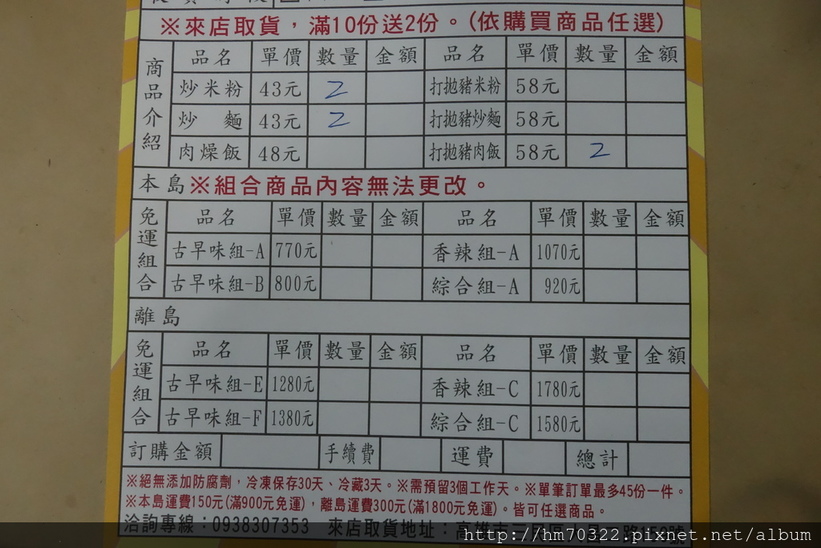 ※來店取貨，滿10份送2份。(依購買商品任選)
商品介紹
品名 單價 數量 金額 品名 單價 數量 金額
炒米粉 43元 2 打拋豬米粉 58元
炒 麵 43元 2 打拋豬炒麵 58元
肉燥飯 48元 打拋豬肉飯 58元 2
本島※組合商品內容無法更改。
免運組合
品名 單價 數量 金額 品名 單價 數量 金額
古早味組-A 770元 香辣組-A 1070元
古早味組-B 800元 綜合組-A 920元
離島
免運組合
品名 單價 數量 金額 品名 單價 數量 金額
古早味組-E 1280元 香辣組-C 1780元
古早味組-F 1380元 綜合組-C 1580元
訂購金額 手續費 運費 總計
※絕無添加防腐劑，冷凍保存30天、冷藏3天。※需預留3個工作天。※單筆訂單最多45份一件。
※本島運費150元(滿900元免運)，離島運費300元(滿1800元免運)。皆可任選商品。
洽詢專線：0938307353 來店取貨地址：高雄市三民區
http://hm70322.pixnet.net/album